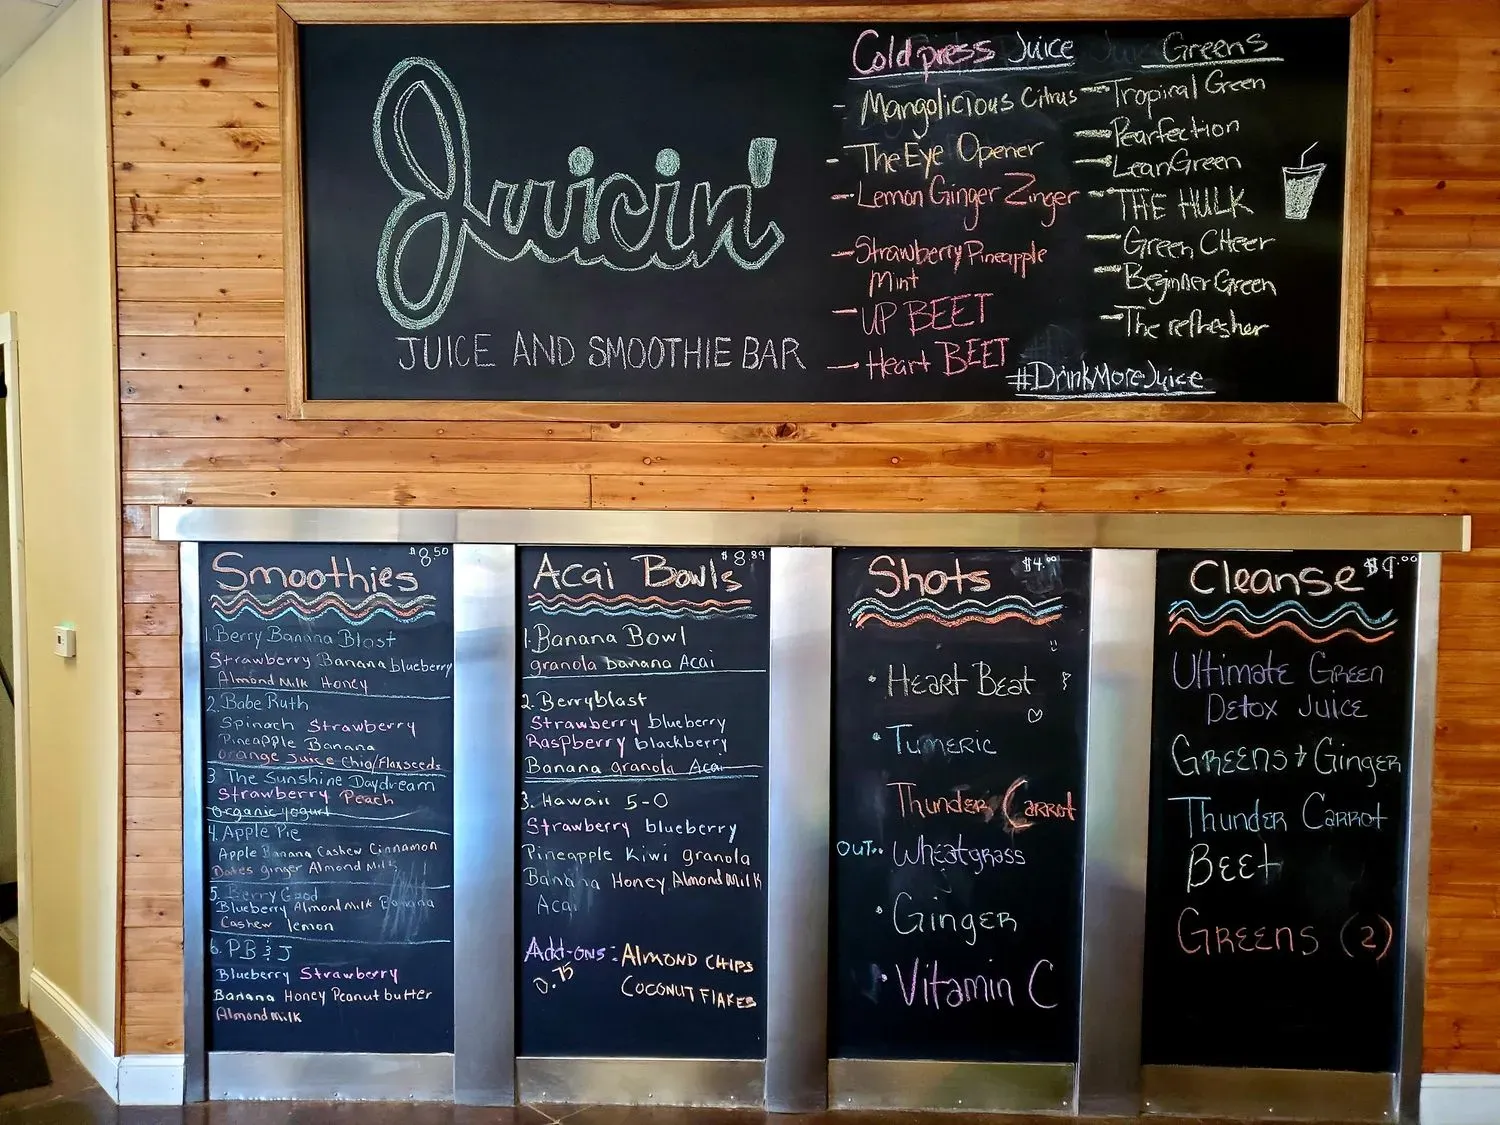 Juicin'
JUICE AND SMOOTHIE BAR
Coldpress Juice
- Mangolicious Citrus
- The Eye Opener
- Lemon Ginger Zinger
- Strawberry Pineapple
Mint
- UP BEET
- Heart BEET
Greens
- Tropical Green
- Pearfection
- LeanGreen
- THE HULK
- Green CHeer
- Beginner Green
- The refresher
#DrinkMoreJuice
Smoothies
$8.50
1. Berry Banana Blast
Strawberry Banana blueberry
Almond Milk Honey
2. Babe Ruth
Spinach Strawberry
Pineapple Banana
orange Juice Chia/Flaxseeds
3 The Sunshine Daydream
Strawberry Peach
Organic yogurt
4. Apple Pie
Apple Banana Cashew Cinnamon
Dates ginger Almond Milk
5. Berry Good
Blueberry Almond Milk Banana
Cashew lemon
6. PB & J
Blueberry Strawberry
Banana Honey Peanut butter
Almond Milk
Acai Bowls
$8.89
1. Banana Bowl
granola banana Acai
2. Berryblast
Strawberry blueberry
Raspberry blackberry
Banana granola Acai
3. Hawaii 5-0
Strawberry blueberry
Pineapple Kiwi granola
Banana Honey Almond Milk
Acai
Add-ons: Almond chips
0.75
Coconut Flakes
Shots
$4.00
• Heart Beat
• Tumeric
Thunder Carrot
OUT.. Wheatgrass
• Ginger
• Vitamin C
Cleanse
$9.00
Ultimate Green
Detox Juice
Greens + Ginger
Thunder Carrot
Beet
Greens (2)